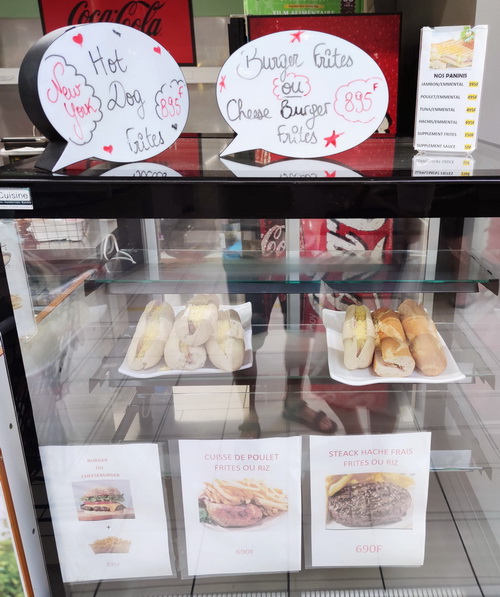 Coca-Cola
FILM ALIMENTAIRE
New
York
Hot
Dog
895F
Frites
Burger Frites
ou
Cheese Burger
Frites
895F
NOS PANINIS
JAMBON/EMMENTAL
POULET/EMMENTAL
TUNA/EMMENTAL
HACHIS/EMMENTAL
SUPPLEMENT FRITES
SUPPLEMENT SAUCE
Cuisine
BURGER
OU
CHEESEBURGER
+
CUISSE DE POULET
FRITES OU RIZ
690F
STEACK HACHE FRAIS
FRITES OU RIZ
690F